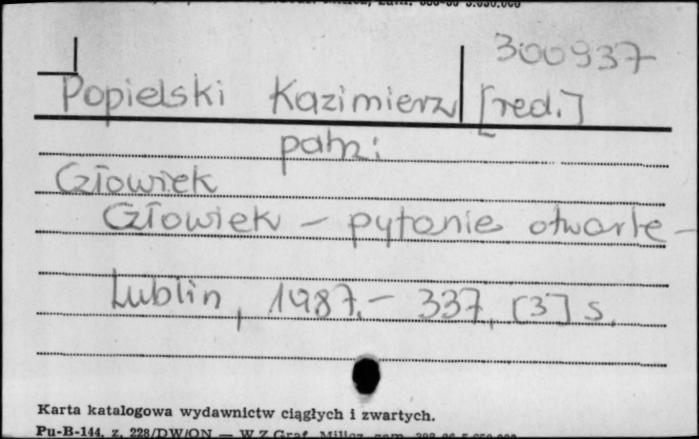 300937
Popielski Kazimierz [red.]
patrz:
Człowiek
Człowiek – pytanie otwarte –
Lublin, 1987. – 337, [3] s.
Karta katalogowa wydawnictw ciągłych i zwartych.
Pu-B-144, z. 228/DW/ON — W.Z.Graf. Milicz, zam.